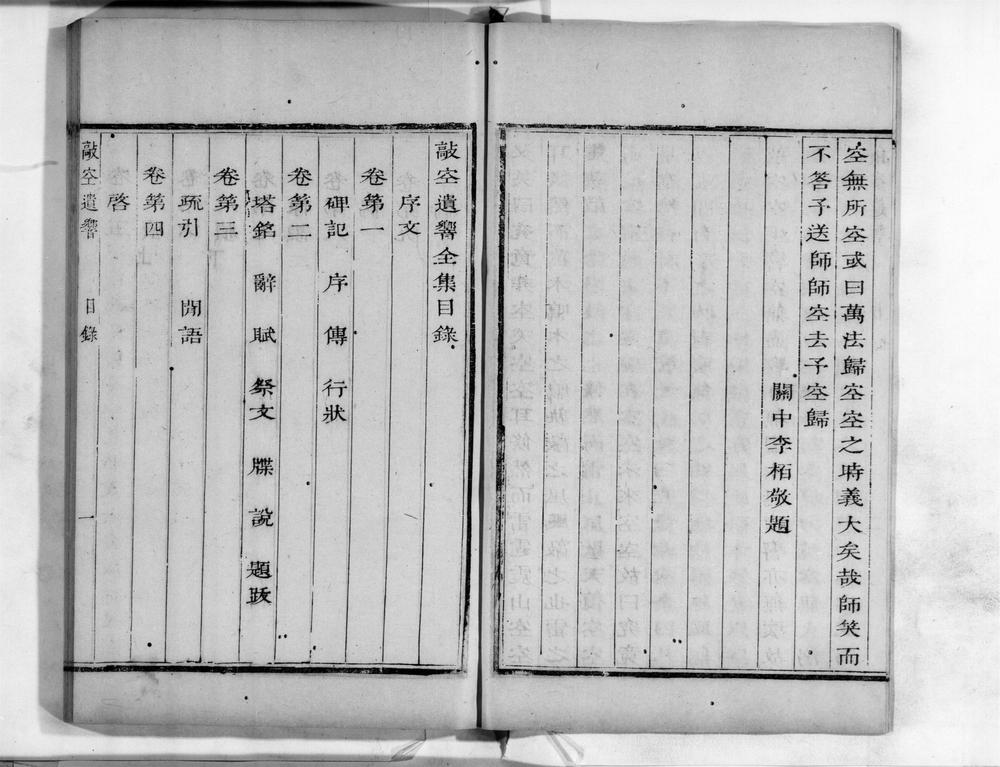 空無所空或曰萬法歸空空之時義大矣哉師笑而
不答予送師師空去予空歸
關中李栢敬題
敲空遺響全集目錄
卷第一
序文
碑記 序 傳 行狀
卷第二
塔銘 辭 賦 祭文 牒 說 題跋
卷第三
疏引 閒語
卷第四
啓
敲空遺響 目錄 一